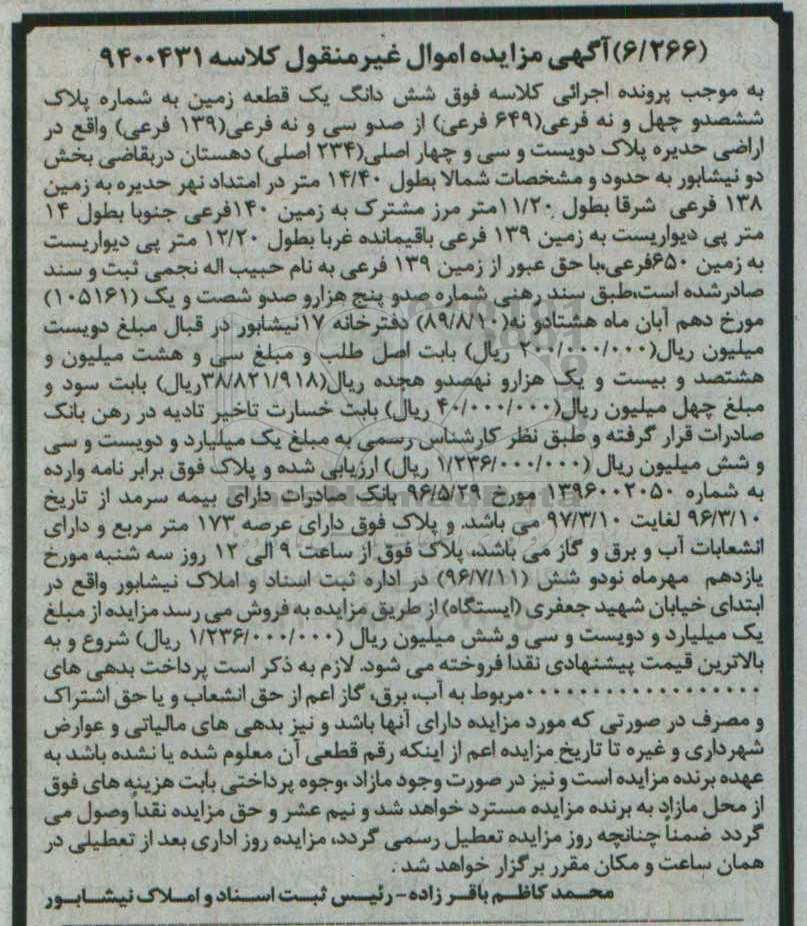 (۶/۲۶۶)آگهی مزایده اموال غیرمنقول کلاسه ۹۴۰۰۴۳۱
به موجب پرونده اجرائی کلاسه فوق شش دانگ یک قطعه زمین به شماره پلاک
ششصدو چهل و نه فرعی(۶۴۹ فرعی) از صدو سی و نه فرعی(۱۳۹ فرعی) واقع در
اراضی حدیره پلاک دویست و سی و چهار اصلی(۲۳۴ اصلی) دهستان دربقاضی بخش
دو نیشابور به حدود و مشخصات شمالا بطول ۱۴/۴۰ متر در امتداد نهر حدیره به زمین
۱۳۸ فرعی شرقا بطول ۱۱/۲۰متر مرز مشترک به زمین ۱۴۰فرعی جنوبا بطول ۱۴
متر پی دیواریست به زمین ۱۳۹ فرعی باقیمانده غربا بطول ۱۲/۲۰ متر پی دیواریست
به زمین ۶۵۰فرعی،با حق عبور از زمین ۱۳۹ فرعی به نام حبیب اله نجمی ثبت و سند
صادرشده است،طبق سند رهنی شماره صدو پنج هزارو صدو شصت و یک (۱۰۵۱۶۱)
مورخ دهم آبان ماه هشتادو نه(۸۹/۸/۱۰) دفترخانه ۱۷نیشابور در قبال مبلغ دویست
میلیون ریال(۲۰۰/۰۰۰/۰۰۰ ریال) بابت اصل طلب و مبلغ سی و هشت میلیون و
هشتصد و بیست و یک هزارو نهصدو هجده ریال(۳۸/۸۲۱/۹۱۸ریال) بابت سود و
مبلغ چهل میلیون ریال(۴۰/۰۰۰/۰۰۰ ریال) بابت خسارت تاخیر تادیه در رهن بانک
صادرات قرار گرفته و طبق نظر کارشناس رسمی به مبلغ یک میلیارد و دویست و سی
و شش میلیون ریال (۱/۲۳۶/۰۰۰/۰۰۰ ریال) ارزیابی شده و پلاک فوق برابر نامه وارده
به شماره ۱۳۹۶۰۰۲۰۵۰ مورخ ۹۶/۵/۲۹ بانک صادرات دارای بیمه سرمد از تاریخ
۹۶/۳/۱۰ لغایت ۹۷/۳/۱۰ می باشد. و پلاک فوق دارای عرصه ۱۷۳ متر مربع و دارای
انشعابات آب و برق و گاز می باشد، پلاک فوق از ساعت ۹ الی ۱۲ روز سه شنبه مورخ
یازدهم مهرماه نودو شش (۹۶/۷/۱۱) در اداره ثبت اسناد و املاک نیشابور واقع در
ابتدای خیابان شهید جعفری (ایستگاه) از طریق مزایده به فروش می رسد مزایده از مبلغ
یک میلیارد و دویست و سی و شش میلیون ریال (۱/۲۳۶/۰۰۰/۰۰۰ ریال) شروع و به
بالاترین قیمت پیشنهادی نقداً فروخته می شود. لازم به ذکر است پرداخت بدهی های
۰۰۰۰۰۰۰۰۰۰۰۰۰۰۰۰۰۰مربوط به آب، برق، گاز اعم از حق انشعاب و یا حق اشتراک
و مصرف در صورتی که مورد مزایده دارای آنها باشد و نیز بدهی های مالیاتی و عوارض
شهرداری و غیره تا تاریخ مزایده اعم از اینکه رقم قطعی آن معلوم شده یا نشده باشد به
عهده برنده مزایده است و نیز در صورت وجود مازاد ،وجوه پرداختی بابت هزینه های فوق
از محل مازاد به برنده مزایده مسترد خواهد شد و نیم عشر و حق مزایده نقداً وصول می
گردد ضمناً چنانچه روز مزایده تعطیل رسمی گردد، مزایده روز اداری بعد از تعطیلی در
همان ساعت و مکان مقرر برگزار خواهد شد.
محمد کاظم باقر زاده- رئیس ثبت اسناد و املاک نیشابور